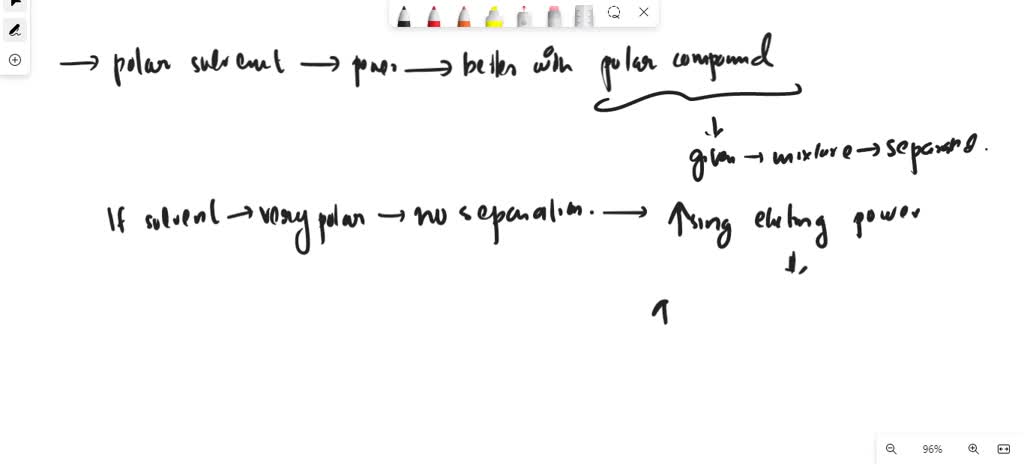 → polar solvent → power → better with polar compound
↓
given → mixture → separand.
If solvent → very polar → no separation. → ↑sing eluting power
↓
↑
96%